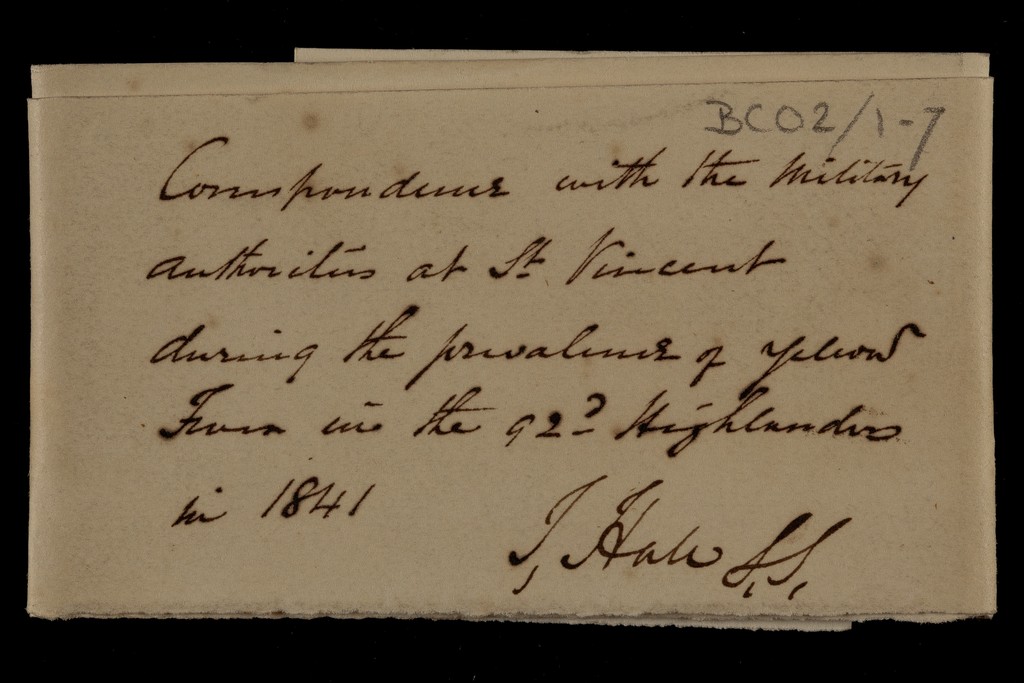 BC02/1-7
Correspondence with the Military
authorities at St. Vincent
during the prevalence of yellow
Fever in the 92d Highlanders
in 1841
J, Hall S,S,